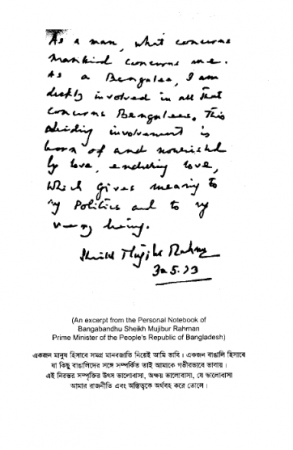 As a man, what concerns
mankind concerns me.
As a Bengalee, I am
deeply involved in all that
concerns Bengalees. This
abiding involvement is
born of and nourished
by love, enduring love,
which gives meaning to
my Politics and to my
very being.
Sheikh Mujibur Rahman
30.5.73
(An excerpt from the Personal Notebook of
Bangabandhu Sheikh Mujibur Rahman
Prime Minister of the People's Republic of Bangladesh)
একজন মানুষ হিসাবে সমগ্র মানবজাতি নিয়েই আমি ভাবি। একজন বাঙালি হিসাবে
যা কিছু বাঙালিদের সঙ্গে সম্পর্কিত তাই আমাকে গভীরভাবে ভাবায়।
এই নিরন্তর সম্পৃক্তির উৎস ভালোবাসা, অক্ষয় ভালোবাসা, যে ভালোবাসা
আমার রাজনীতি এবং অস্তিত্বকে অর্থবহ করে তোলে।